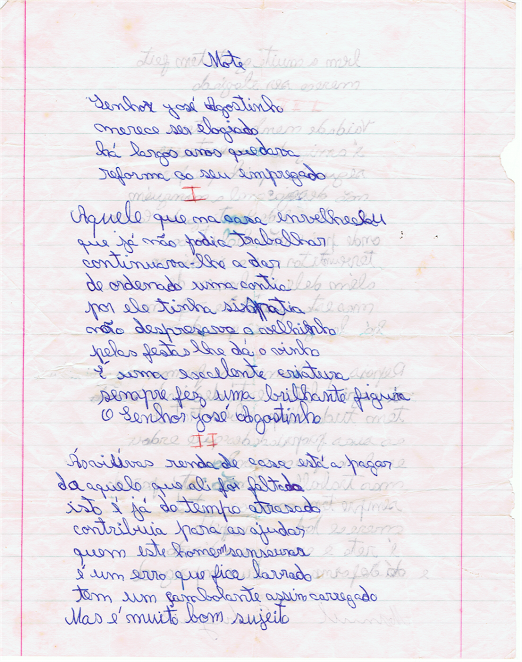 Mote
Senhor josé Agostinho
merece ser elogiado
há largos anos que dava
reforma ao seu empregado
I
Aquele que na casa envelheceu
que já não podia trabalhar
continuava-lhe a dar
de ordenado uma contia
por ele tinha simpatia
não despresava o velhinho
pelas festas lhe dá o vinho
É uma sscelante criatura
sempre fez uma brilhante figura
O Senhor josé Agostinho
II
Ás viúvas renda de casa está a pagar
da aquelo que ali for faltado
isto é já do tempo atrasado
contribuia para as ajudar
quem este homem
é um erro que fica lavrado
tem um assim carregado
Mas é muito bom sujeito